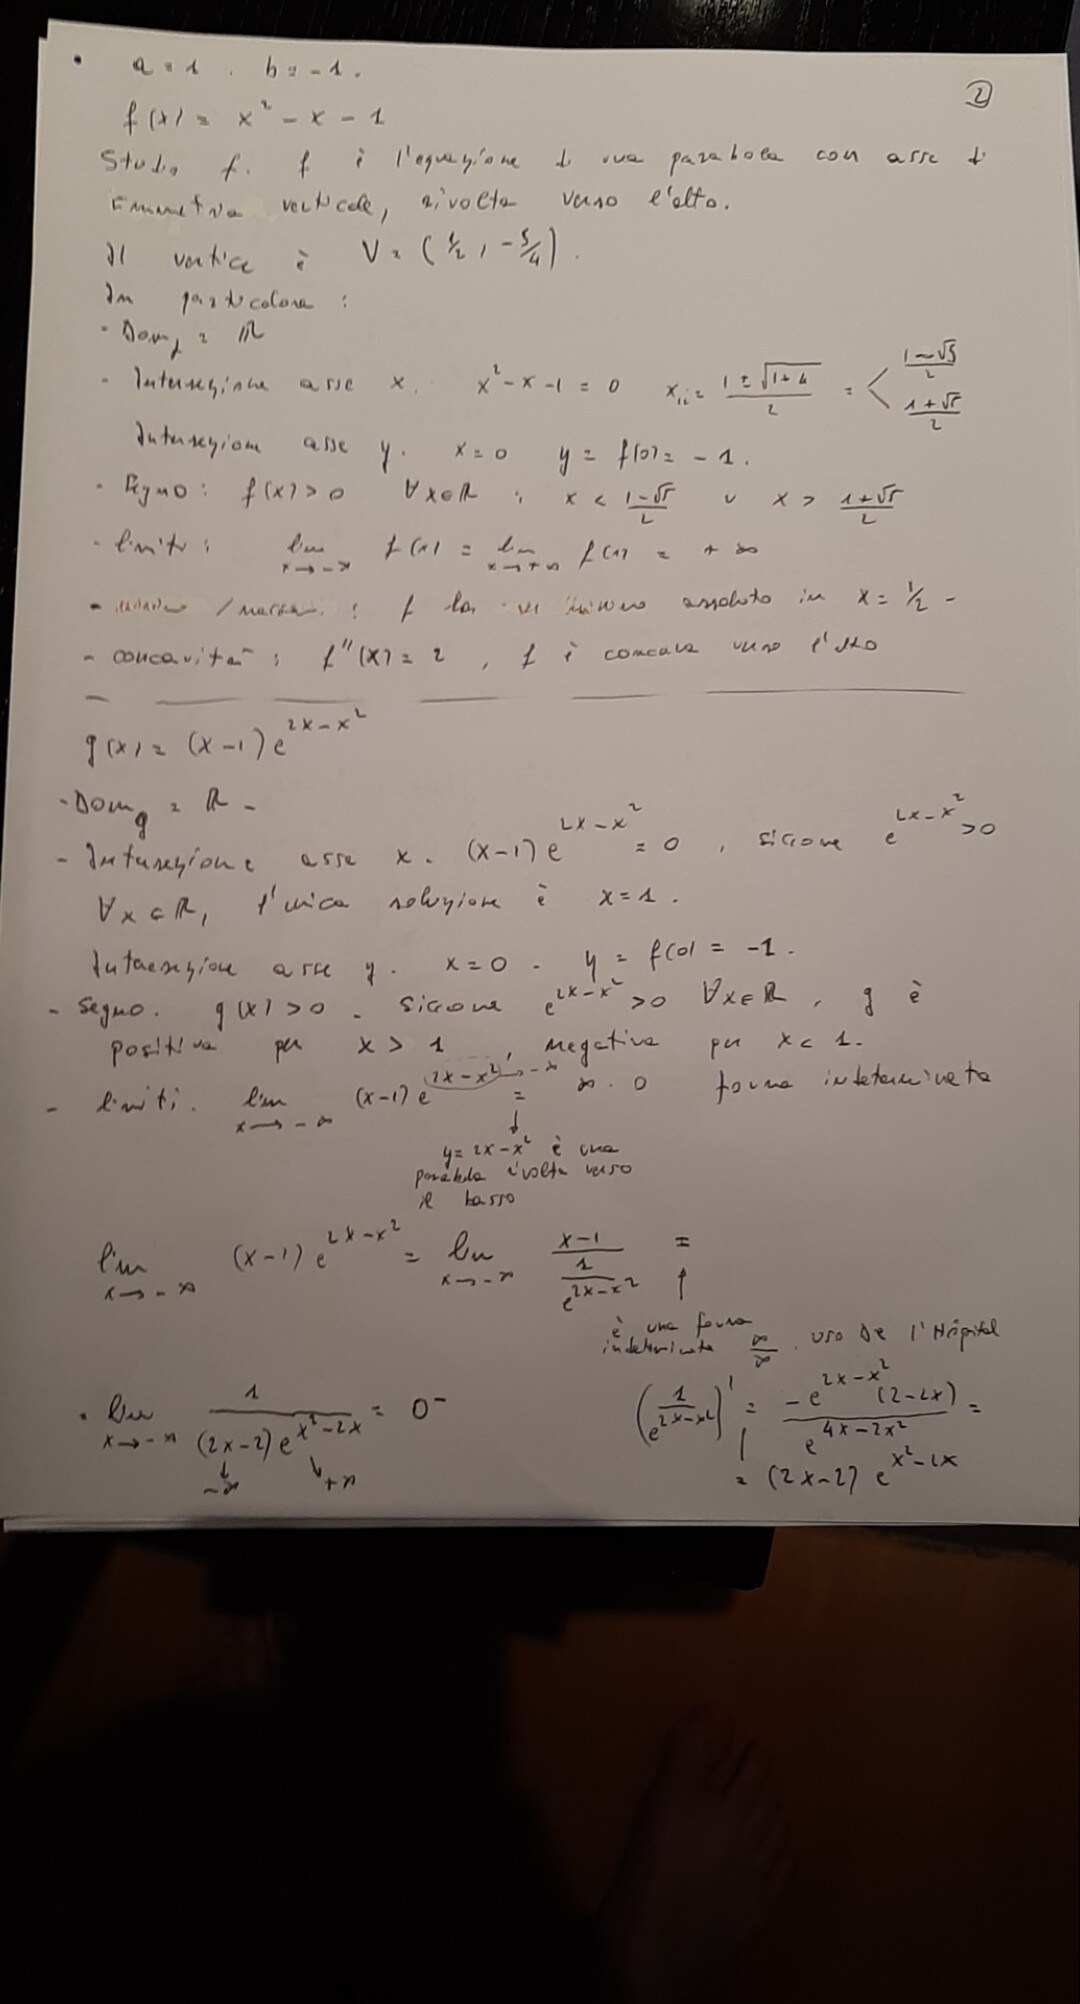 ②
• a = 1 . b = -1.
f(x) = x² - x - 1
Studio f. f è l'equazione di una parabola con asse di
simmetria verticale, rivolta verso l'alto.
Il vertice è V = (1/2, -5/4).
In particolare:
- Dom_f = ℝ
- Intersezione asse x. x² - x - 1 = 0 x₁,₂ = (1 ± √(1+4))/2 = < (1-√5)/2 (1+√5)/2
Intersezione asse y. x = 0 y = f(0) = -1.
- Segno: f(x) > 0 ∀x∈ℝ : x < (1-√5)/2 ∨ x > (1+√5)/2
- limiti: lim x→-∞ f(x) = lim x→+∞ f(x) = +∞
- minimo / massimi: f ha un minimo assoluto in x = 1/2 -
- concavità: f''(x) = 2, f è concava verso l'alto
g(x) = (x-1) e^(2x-x²)
- Dom_g = ℝ -
- Intersezione asse x. (x-1) e^(2x-x²) = 0, siccome e^(2x-x²) > 0
∀x∈ℝ, l'unica soluzione è x = 1.
Intersezione asse y. x = 0 - y = f(0) = -1.
- Segno. g(x) > 0 - Siccome e^(2x-x²) > 0 ∀x∈ℝ, g è
positiva per x > 1, negativa per x < 1.
- limiti. lim x→-∞ (x-1) e^(2x-x²) →-∞ = ∞ · 0 forma indeterminata
↓
y = 2x-x² è una
parabola rivolta verso
il basso
lim x→-∞ (x-1) e^(2x-x²) = lim x→-∞ (x-1)/(1/e^(2x-x²)) =
↑
è una forma
indeterminata ∞/∞. uso De l'Hôpital
• lim x→-∞ 1/((2x-2) e^(x²-2x)) = 0⁻
↓ -∞ ↘ +∞
(1/e^(2x-x²))' = (-e^(2x-x²) (2-2x))/e^(4x-2x²) =
= (2x-2) e^(x²-2x)